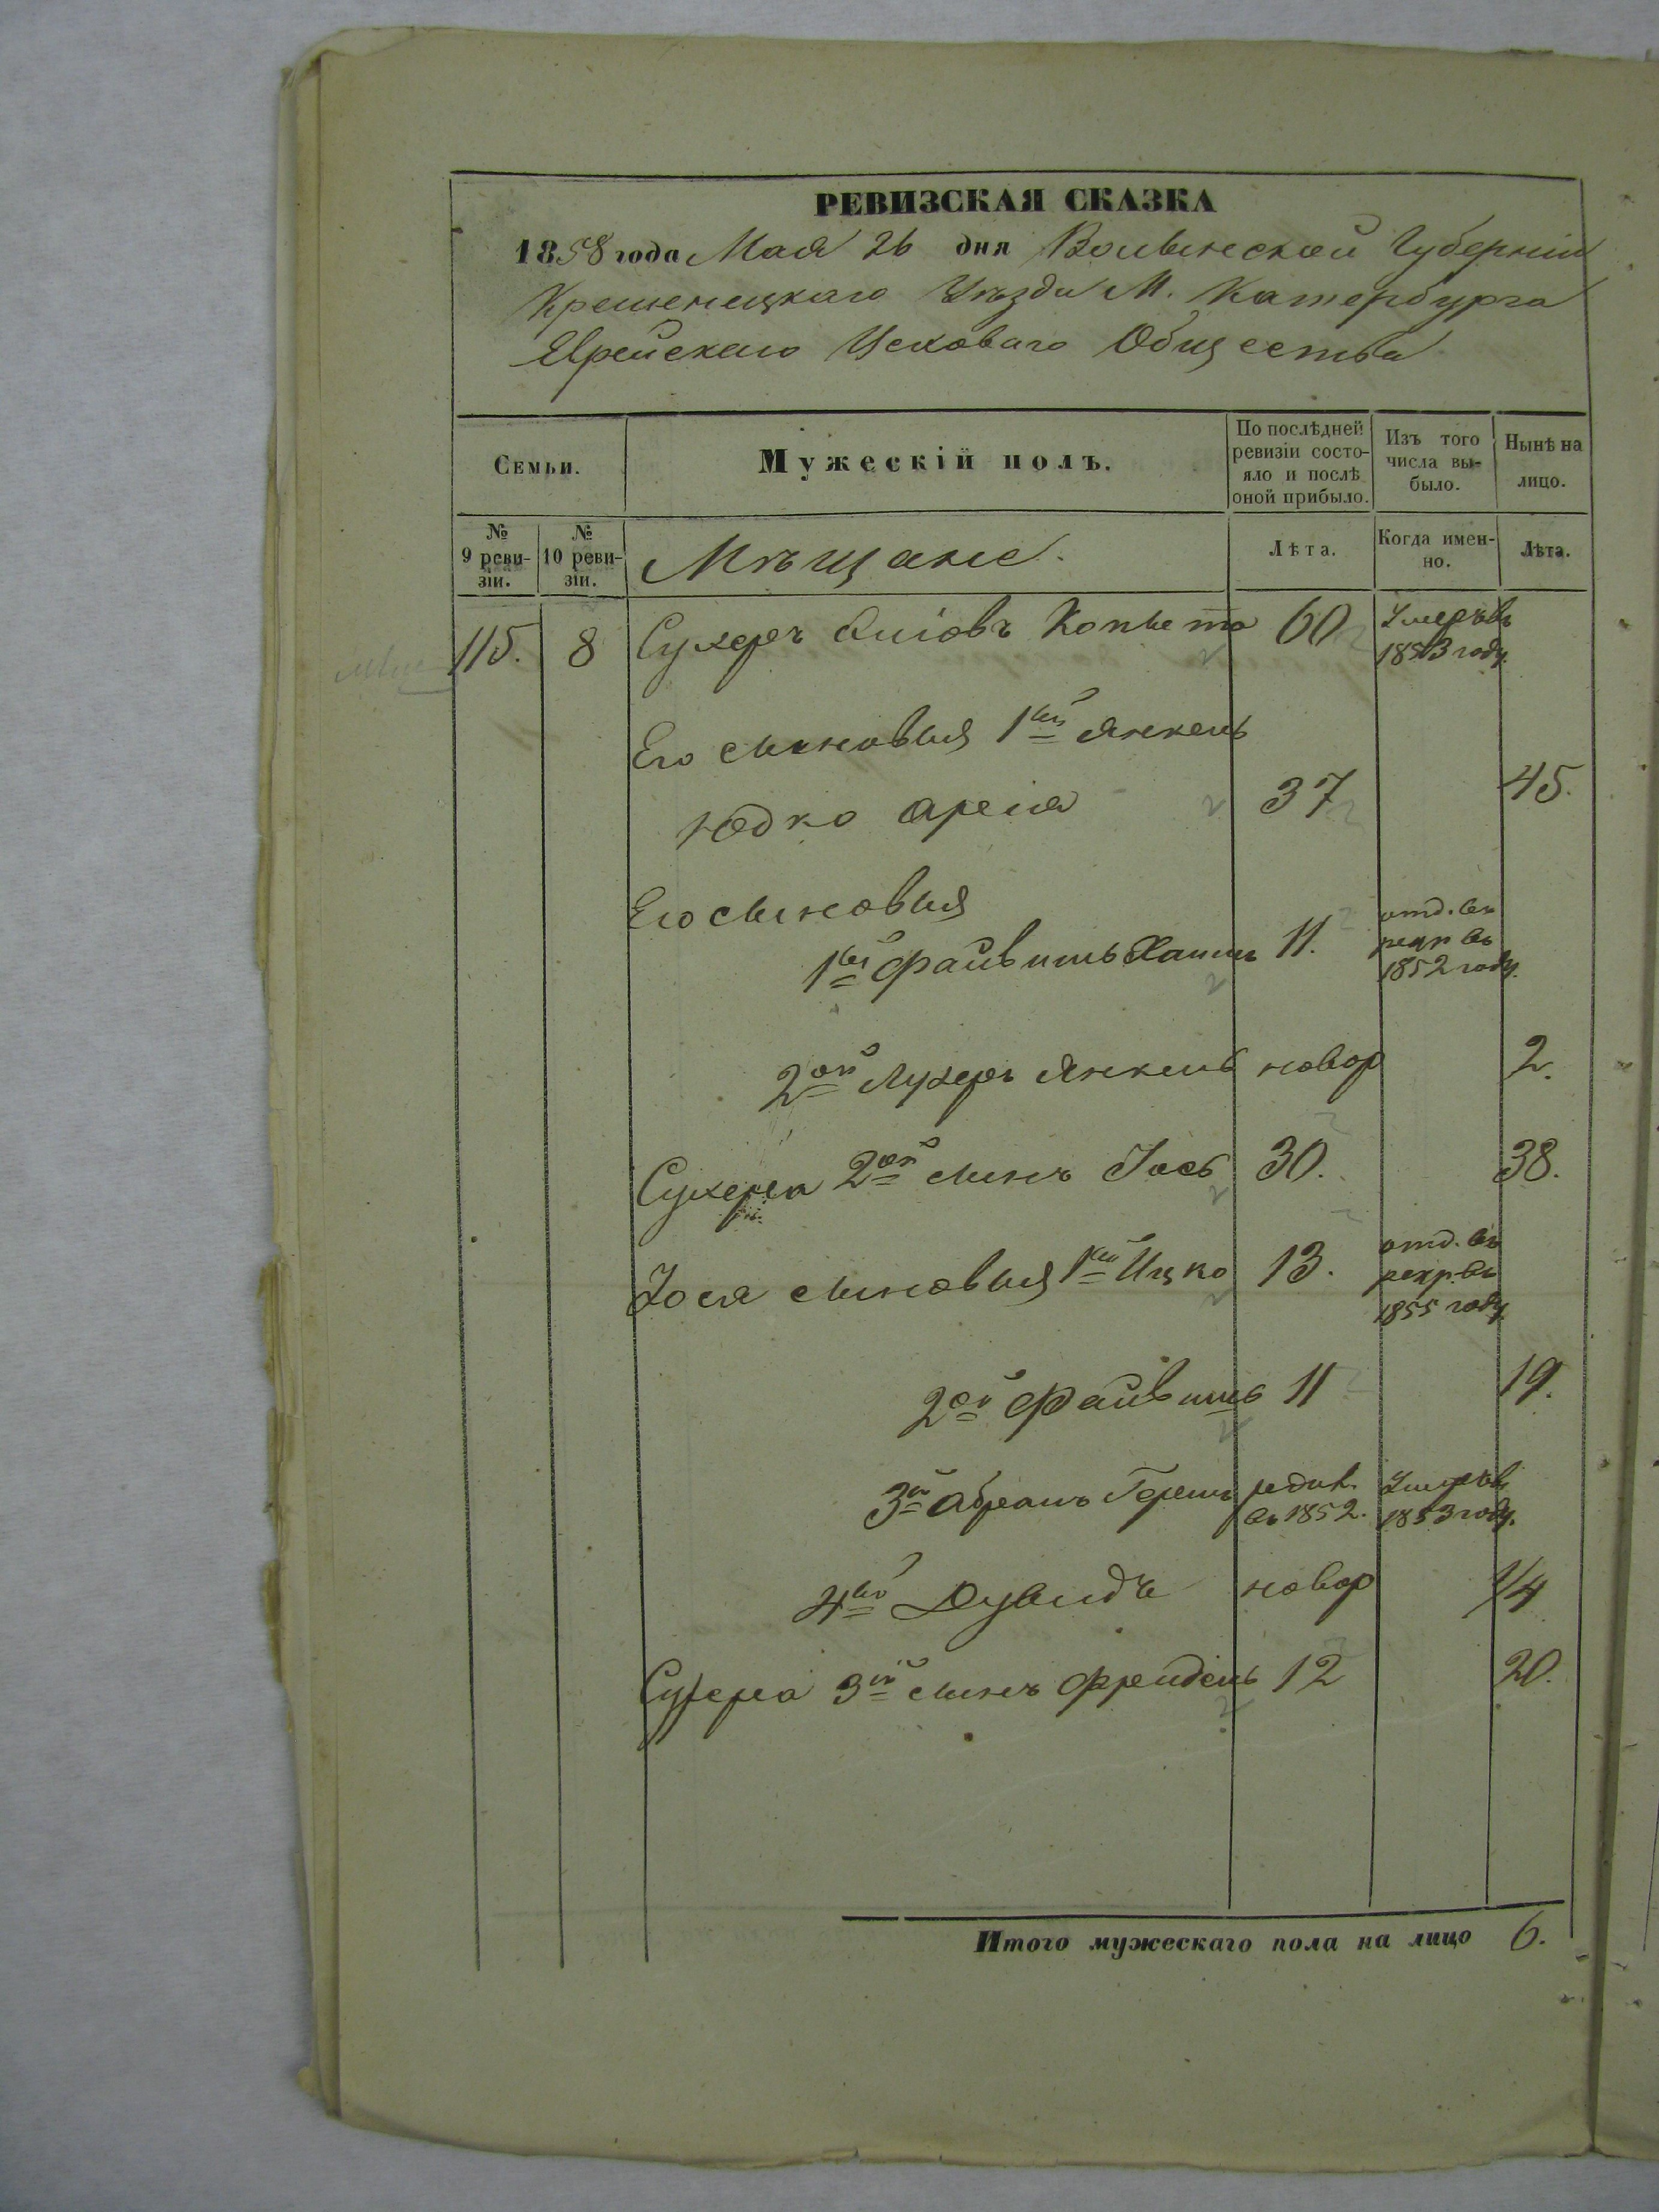 РЕВИЗСКАЯ СКАЗКА
1858 года Мая 26 дня Волынской Губерніи
Кременецкаго Уѣзда М. Катербурга
Еврейскаго Цеховаго Общества
Семьи.
Мужескій полъ.
По послѣдней ревизіи состо-яло и послѣ оной прибыло.
Изъ того числа вы-было.
Нынѣ на лицо.
№ 9 реви-зіи.
№ 10 реви-зіи.
Мѣщане.
Лѣта.
Когда имен-но.
Лѣта.
115. 8 Сухеръ 60 Умеръ въ 1853 году.
Его сыновья 1ый Янкель
Юдко 37 45.
Его сыновья
1ый Файвишъ Хаимъ 11. отд. въ рекр въ 1852 году.
2ой Лухеръ Янкель новор 2.
Сухера 2ой сынъ Іось 30. 38.
Іося сыновья 1ый Ицко 13. отд. въ рекр. въ 1855 году.
2ой Файвишь 11 19.
3й Абрамъ Гершъ родив. въ 1852. Умеръ въ 1853 году.
4ый Дувидъ новор 1/4
Сухера 3й сынъ Фрейдель 12 20.
Итого мужескаго пола на лицо 6.